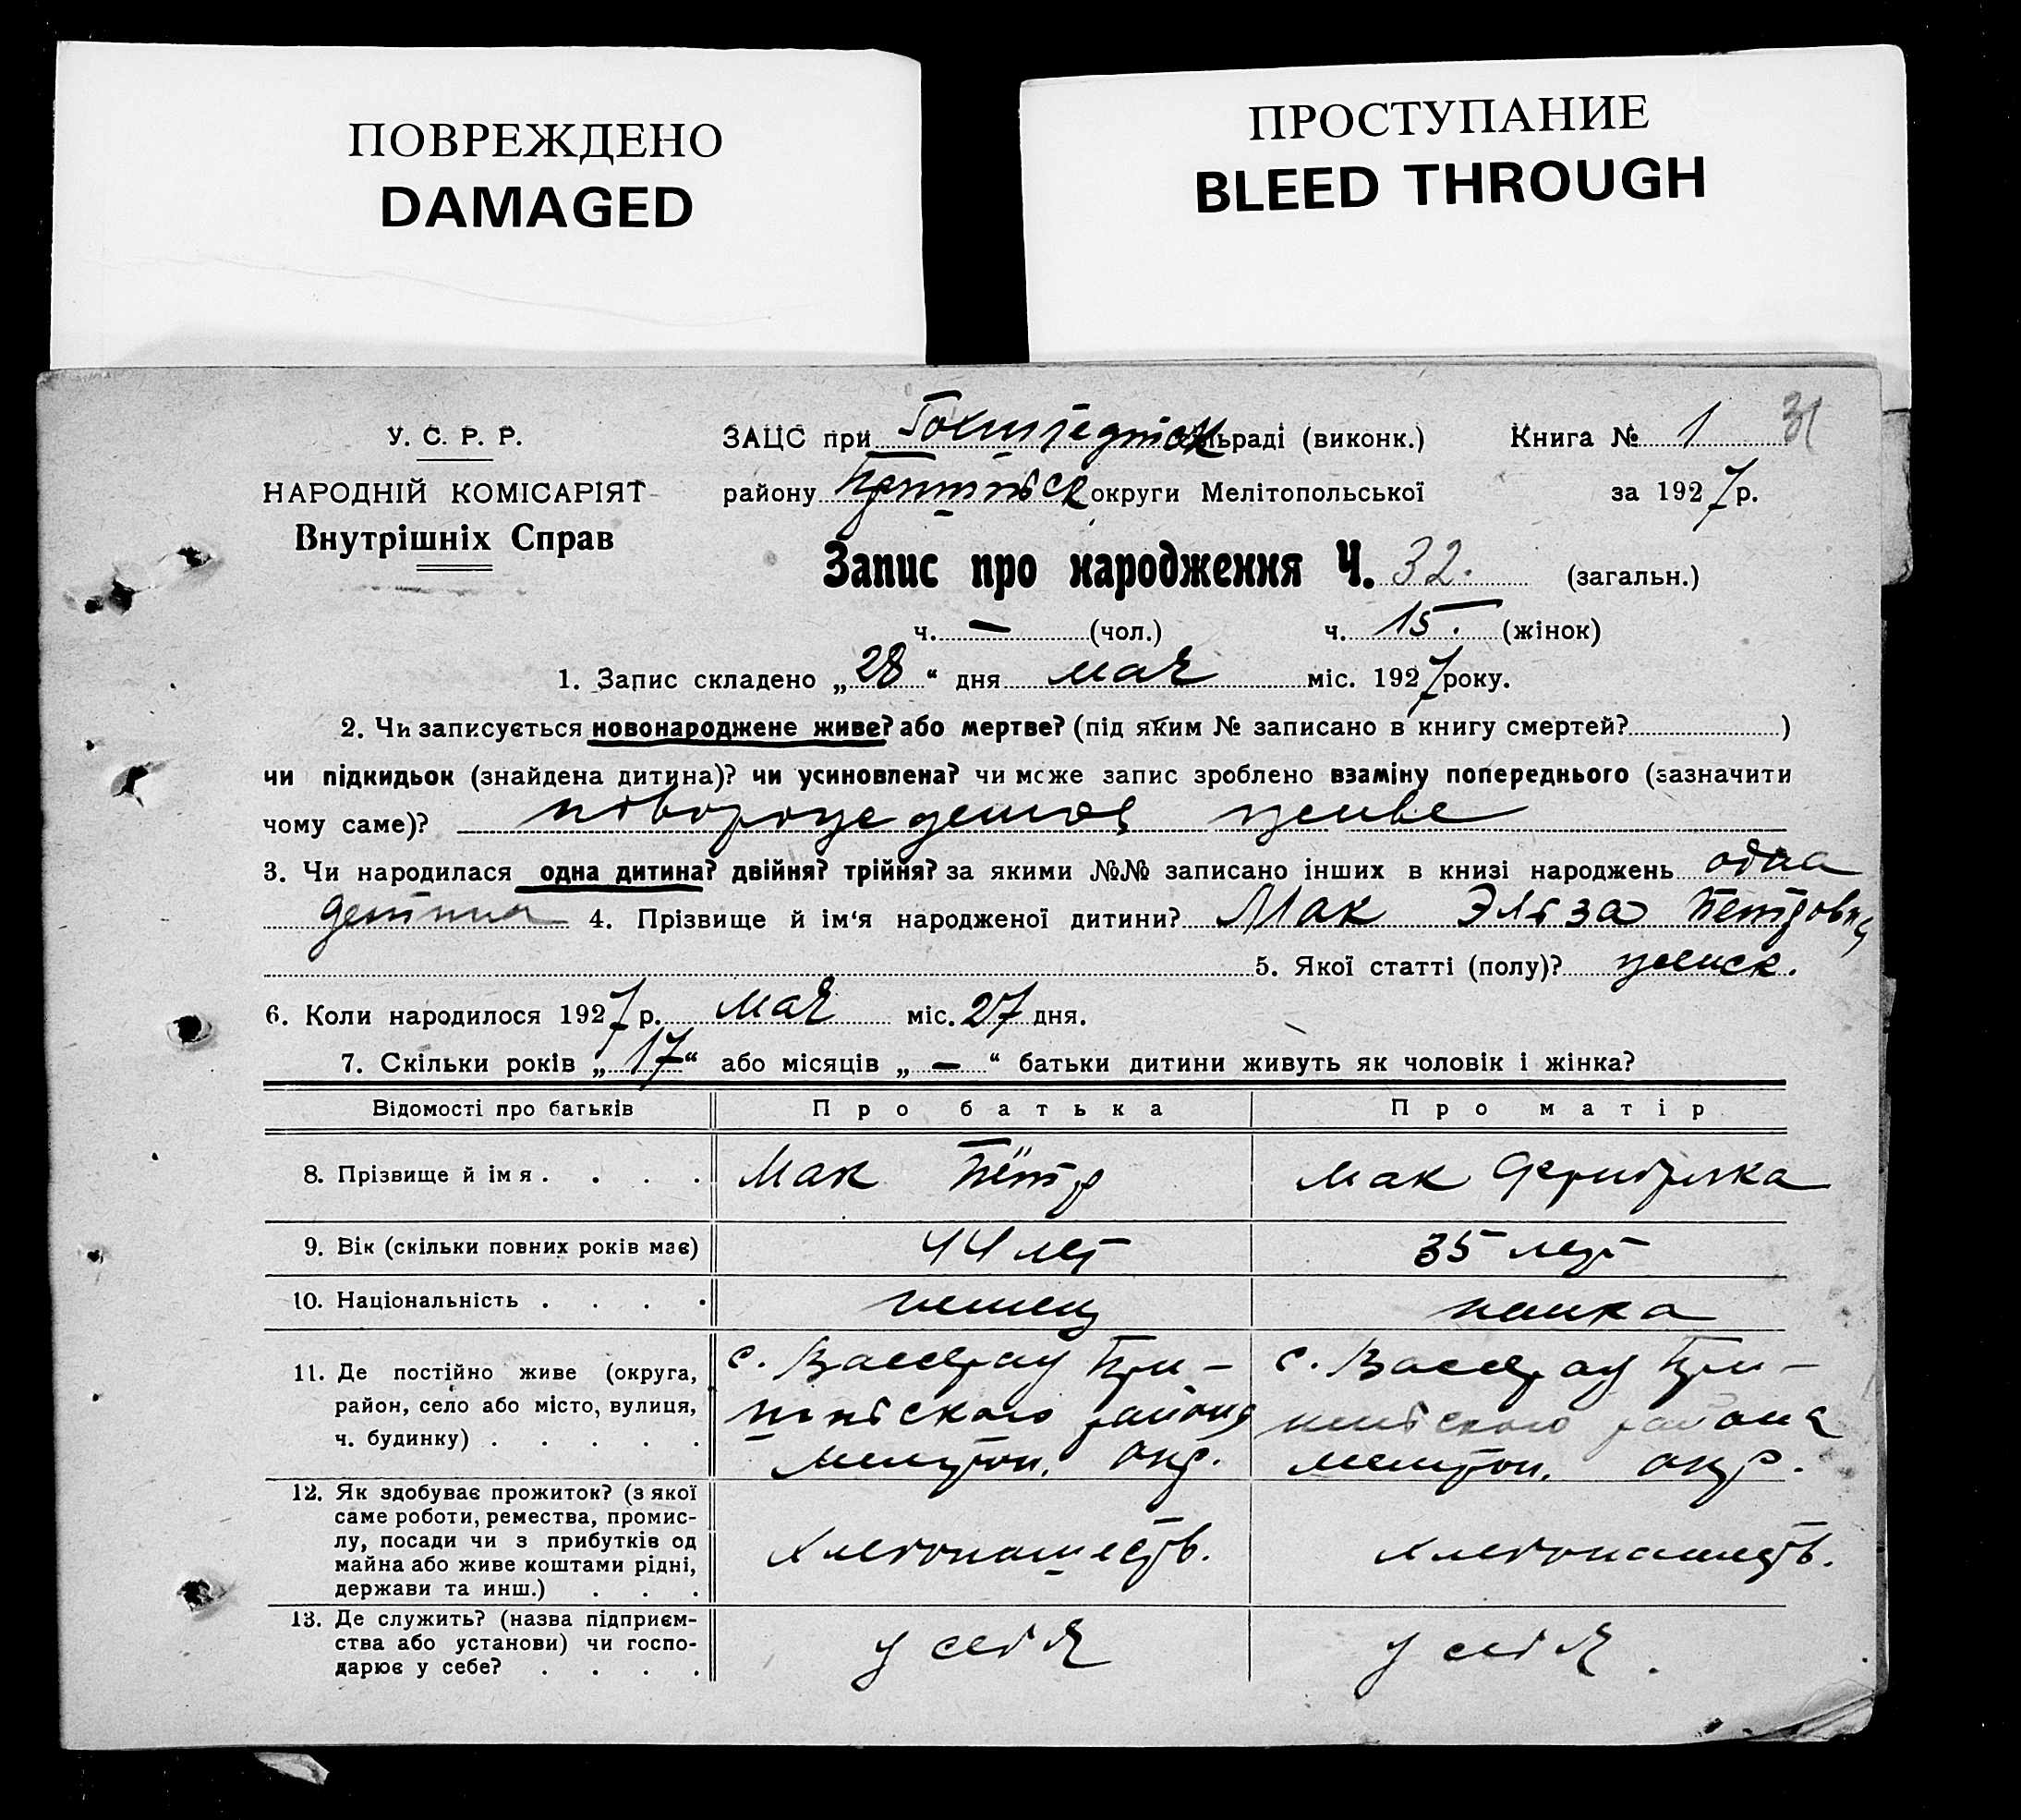 ПОВРЕЖДЕНО
DAMAGED
ПРОСТУПАНИЕ
BLEED THROUGH
31
У. С. Р. Р.
НАРОДНІЙ КОМІСАРІЯТ
Внутрішніх Справ
ЗАЦС при льраді (виконк.) Книга № 1
району округи Мелітопольської за 1927 р.
Запис про народження Ч. 32. (загальн.)
ч. — (чол.) ч. 15. (жінок)
1. Запис складено „28“ дня мая міс. 1927 року.
2. Чи записується новонароджене живе? або мертве? (під яким № записано в книгу смертей? )
чи підкидьок (знайдена дитина)? чи усиновлена? чи може запис зроблено взаміну попереднього (зазначити
чому саме)? живе
3. Чи народилася одна дитина? двійня? трійня? за якими №№ записано інших в книзі народжень одна
4. Прізвище й ім‘я народженої дитини? Мак Эльза Петровна
5. Якої статті (полу)? женск.
6. Коли народилося 1927 р. мая міс. 27 дня.
7. Скільки років „17“ або місяців „—“ батьки дитини живуть як чоловік і жінка?
Відомості про батьків Про батька Про матір
8. Прізвище й імя . . . . Мак Пётр Мак
9. Вік (скільки повних років має) 44 лет 35 лет
10. Національність . . . . немец немка
11. Де постійно живе (округа,
район, село або місто, вулиця,
ч. будинку) . . . . .
с. Вассерау При-
шибского района
Мелитоп. окр.
с. Вассерау При-
шибского района
Мелитоп. окр.
12. Як здобуває прожиток? (з якої
саме роботи, ремества, промис-
лу, посади чи з прибутків од
майна або живе коштами рідні,
держави та инш.) . . .
хлебопашеств.
хлебопашеств.
13. Де служить? (назва підприєм-
ства або установи) чи госпо-
дарює у себе? . . . .
у себя
у себя.